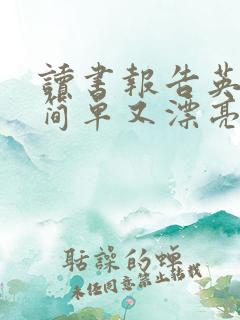 讀書報告英
簡單又漂亮
聒譟的蟬
未经同意禁止转载